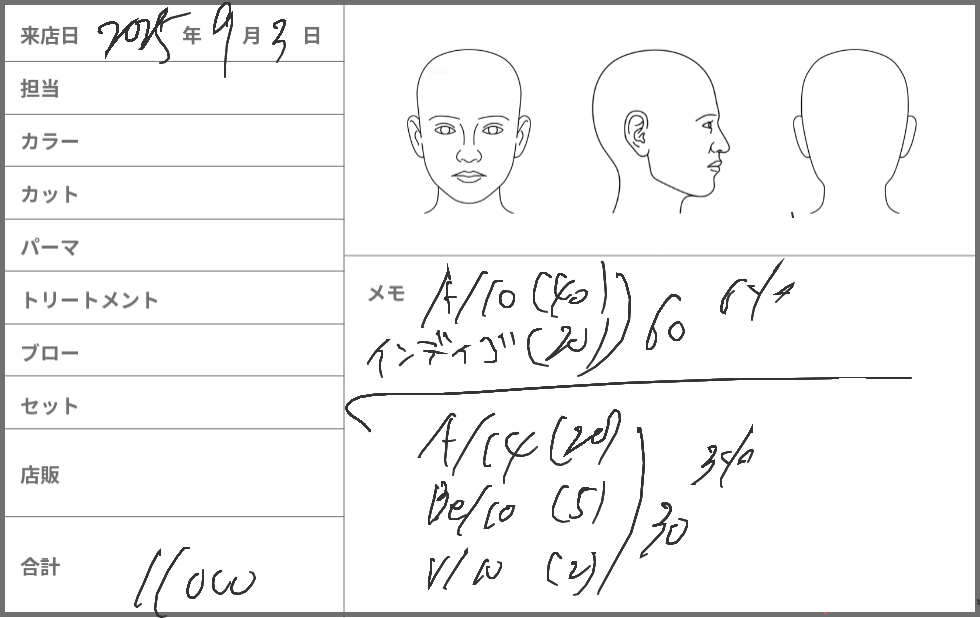 来店日 2025年9月3日
担当
カラー
カット
パーマ
トリートメント
ブロー
セット
店販
合計 11000
メモ
A/10 (40)
インディゴ (20)
60 6%
A/14 (20)
Be/10 (5)
V/10 (2)
30 3%